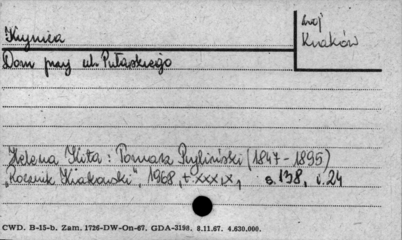 Krynica
woj
Kraków
Dom przy ul. Pułaskiego
Helena Kita : Tomasz Pryliński (1847 - 1895)
"Rocznik Krakowski", 1968, t. XXXIX, s. 138, i. 24
CWD. B-15-b. Zam. 1726-DW-On-67. GDA-3198. 8.11.67. 4.630.000.